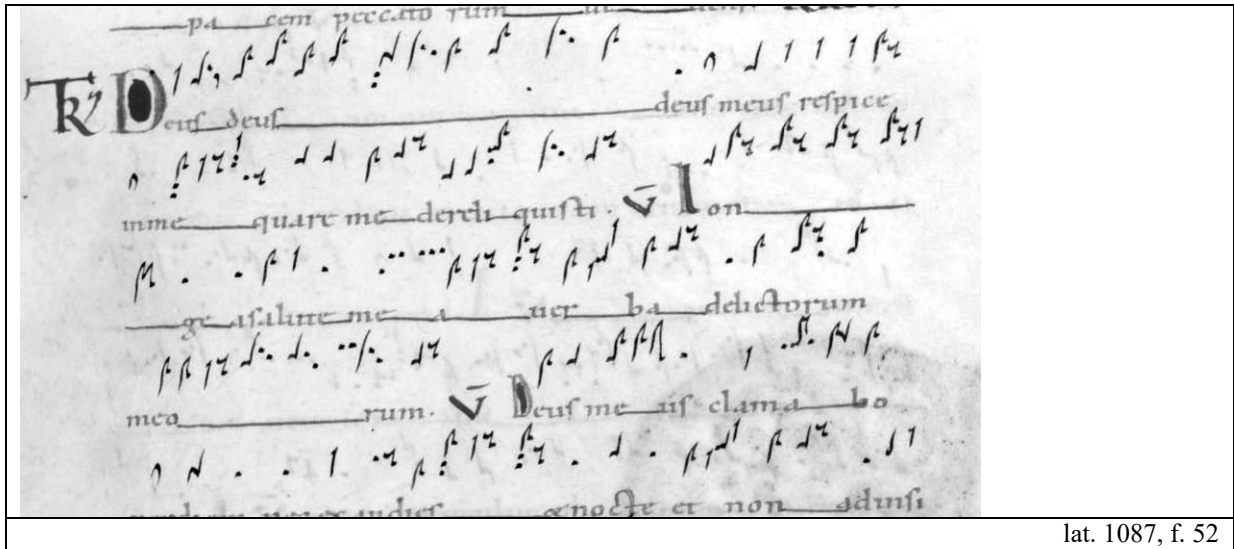 pa cem peccato rum
TR Deus deus deus meus respice
inme quare me dereli quisti. V Lon
ge asalute me a uer ba delictorum
meo rum. V Deus me us clama bo
&nocte et non adinsi
lat. 1087, f. 52